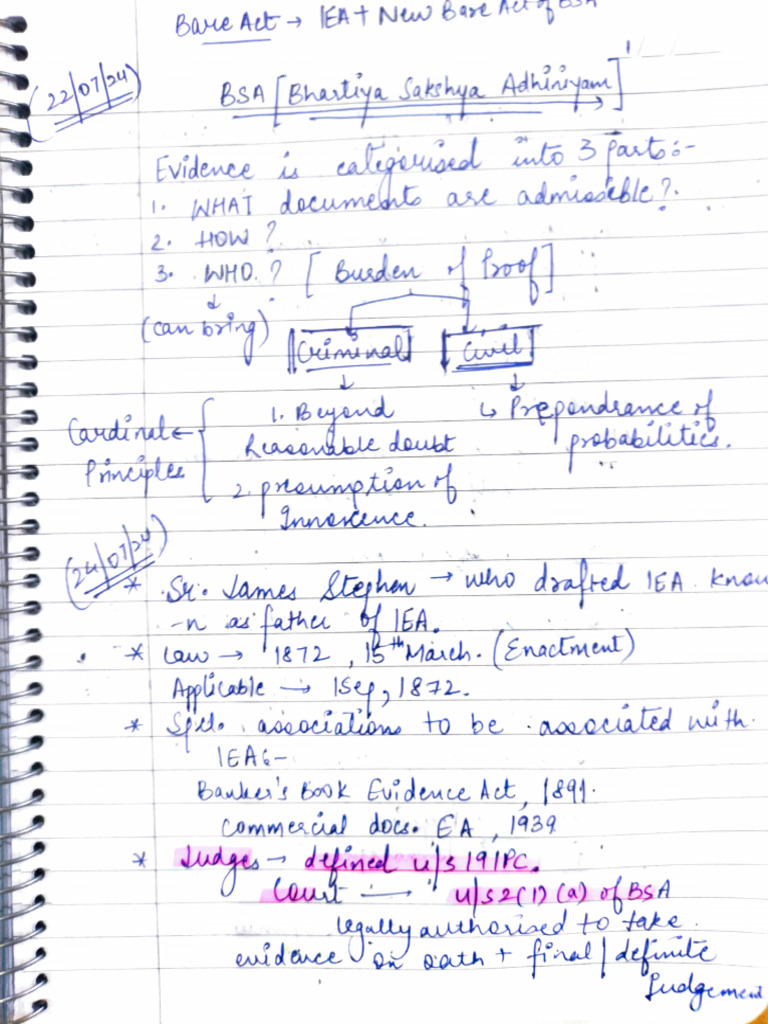 Bare Act → IEA + New Bare Act of BSA
(22/07/24)
BSA [Bhartiya Sakshya Adhiniyam]
Evidence is categorised into 3 parts:-
1. WHAT documents are admissible?
2. HOW?
3. WHO? [Burden of Proof]
↓
(can bring)
Criminal Civil
↓ ↓
1. Beyond ↳ Prepondrance of
Cardinal ← Reasonable doubt probabilities.
Principles 2. presumption of
Innocence.
(24/07/24)
* Sr. James Stephen → who drafted IEA know
-n as father of IEA.
* Law → 1872, 15th March. (Enactment)
Applicable → 1 Sep, 1872.
* associations to be associated with
IEA:-
Banker's Book Evidence Act, 1891.
Commercial docs. EA, 1939
* Judges → defined u/s 19 IPC.
Court → u/s 2(1)(a) of BSA
legally authorised to take
evidence on oath + final/definite
Judgement